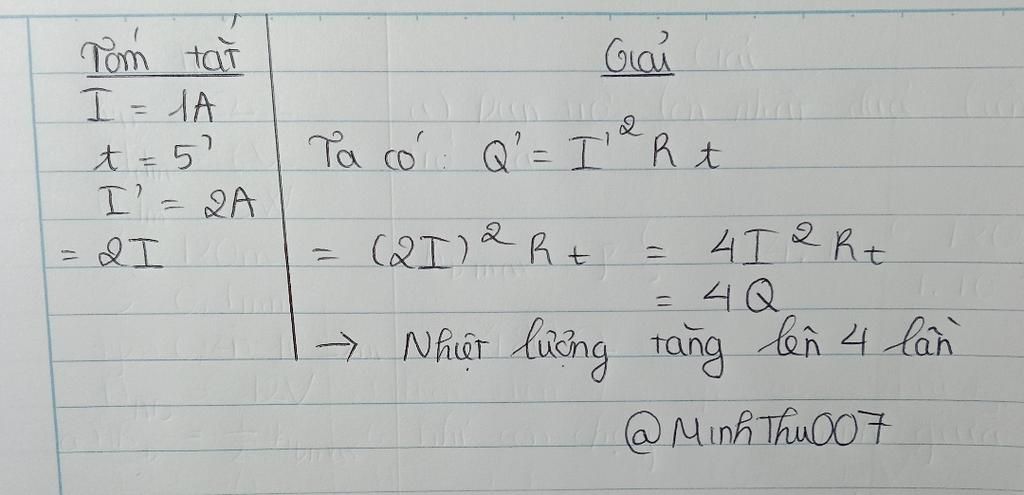 Tóm tắt
I = 1A
t = 5'
I' = 2A
= 2I
Giải
Ta có: Q' = I'² R t
= (2I)² R t = 4I² R t
= 4Q
→ Nhiệt lượng tăng lên 4 lần
@MinhThu007